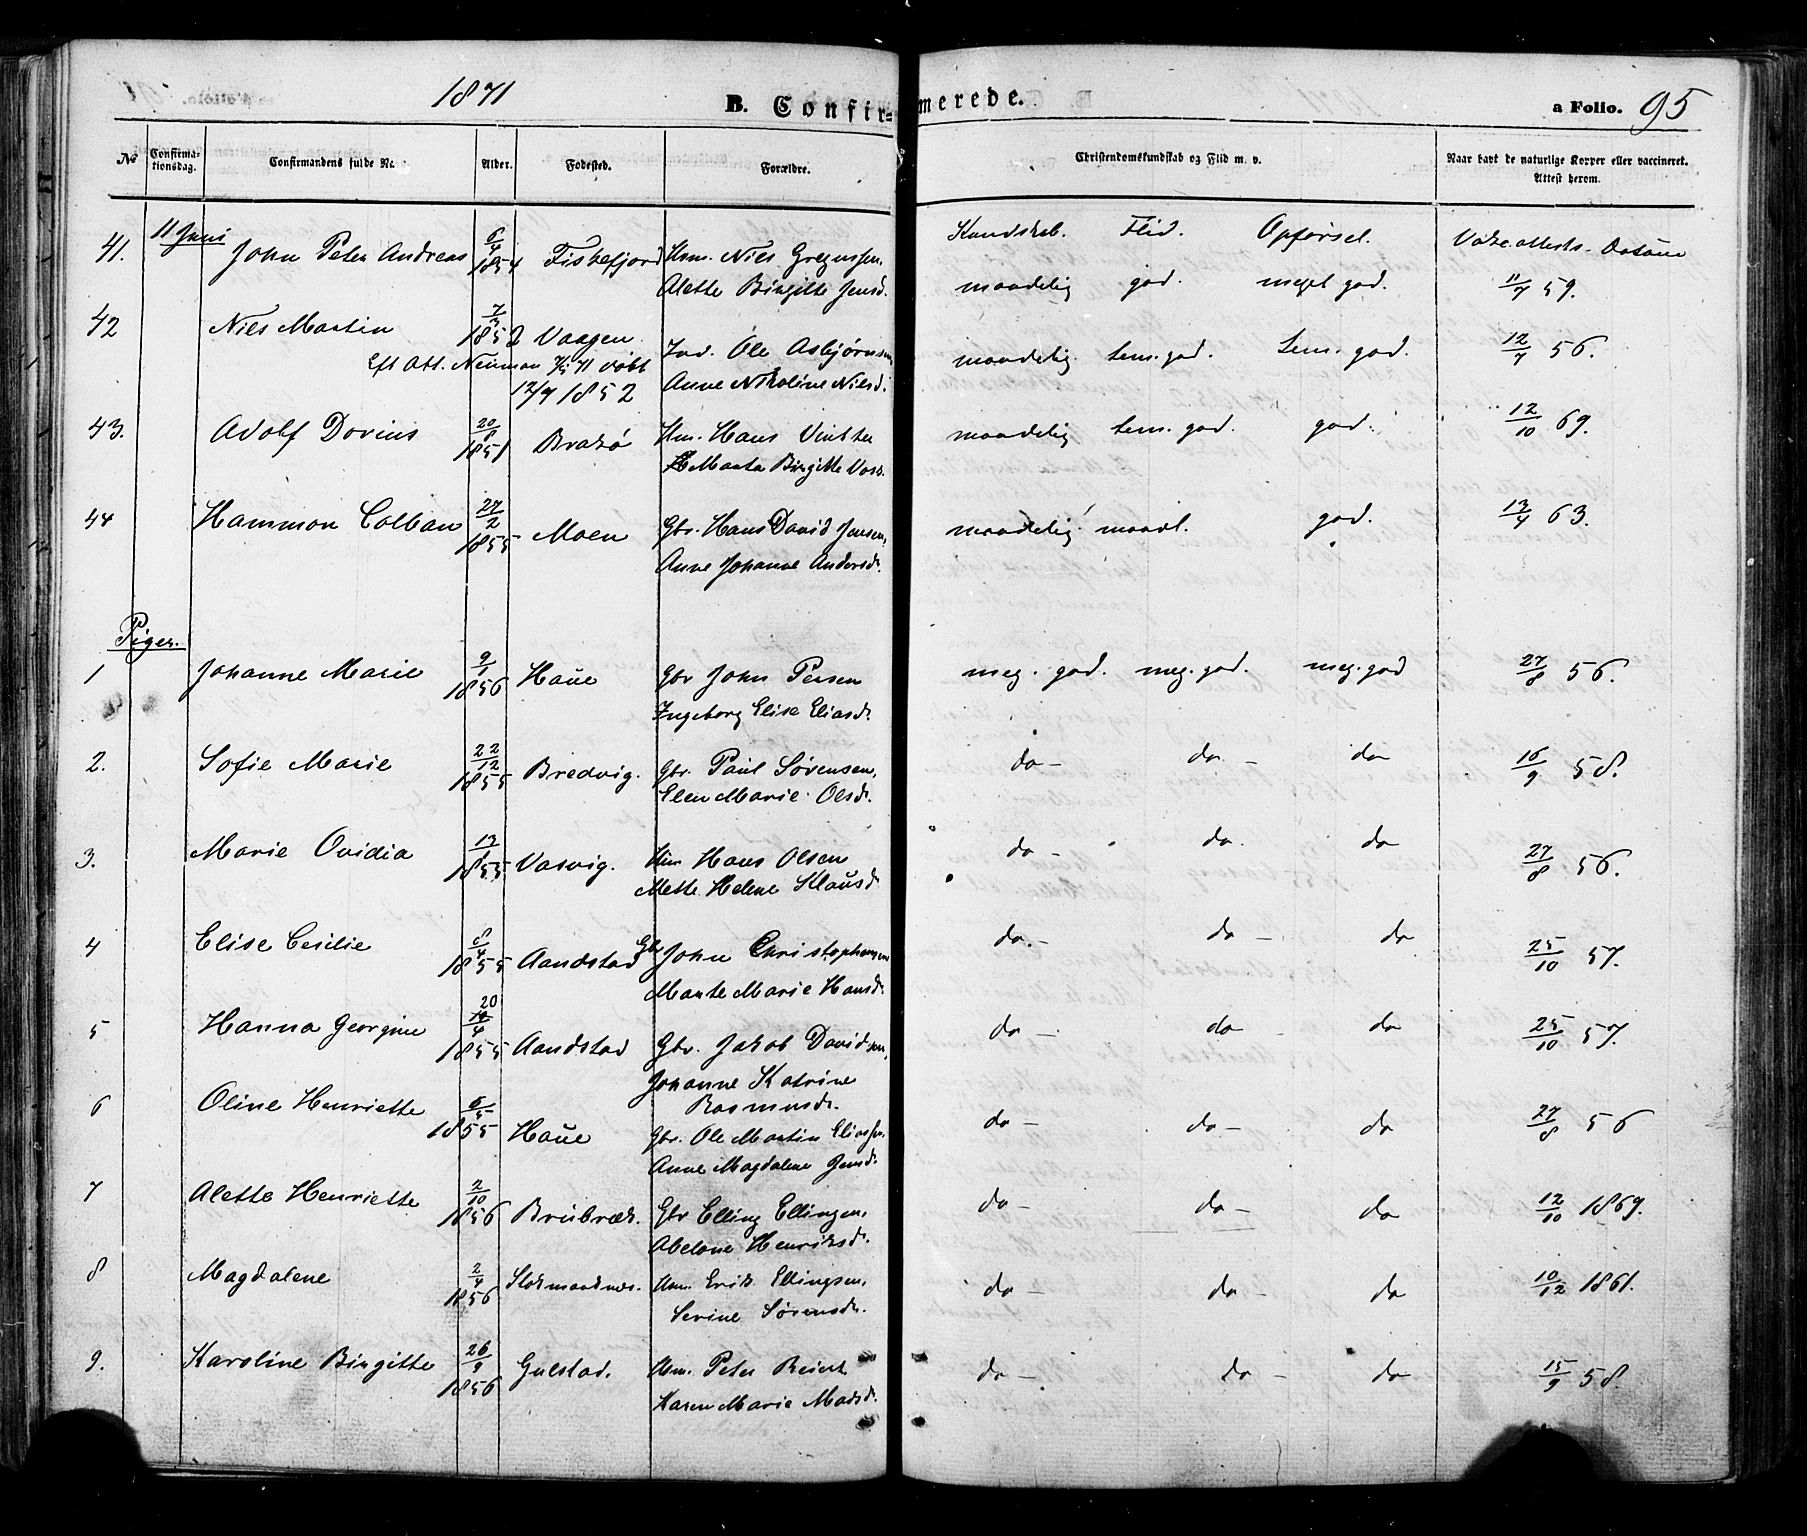 1871
B. Confir=
merede.
a Folio. 95
No
Confirmationsdag.
Confirmandens fulde Na
Alder.
Fødested.
Forældre.
Christendomskundskab og Flid m. v.
Naar havt de naturlige Kopper eller vaccineret.
Attest herom.
11 Juni
Kundskab. Flid. Opførsel.
41. John Peter Andreas 6/4 1854 Fiskefjord Hsm. Niels Gregussen,
Alette Birgitte Jensd. maadelig god. meget god. 11/7 59.
42 Niels Martin 7/3 1852 Vaagen Ind. Ole Asbjørnsen
Anne Nikoline Nielsd. maadelig. tem. god. tem. god. 12/7 56.
Eft Att. Neuman 71 døbt
12/9 1852
43. Adolf Dorius 20/8 1851 Braxø Hsm. Hans
Marta Birgitte maadelig tem. god. god. 12/10 69.
44 Hammon Colban 27/2 1855 Moen Gbr. Hans David Jensen,
Anne Johanne Andersd. maadelig. maadl. god. 13/4 63.
Piger.
1 Johanne Marie 9/1 1856 Haue Gbr John Persen
Ingeborg Elise Eliasd. meg. god. meg. god. meg. god 27/8 56.
2. Sofie Marie 22/12 1855 Bredvig. Gbr. Paul Sørensen,
Elen Marie Olsd. do - do - do 16/9 58.
3. Marie Ovidia 13/1 1855 Vasvig. Hsm Hans Olsen
Mette Helene Klausd. do - do. do 27/8 56.
4 Elise Cecilie 8/4 1855 Aandstad Gbr John Christophersen
Marte Marie Hansd. do. - do - do 25/10 57.
5 Hanna Georgine 20/4 1855 Aandstad Gbr. Jakob Davidsen,
Johanne Katrine
Rasmusd. do - do - do 25/10 57.
6 Oline Henriette 6/5 1855 Haue Gbr. Ole Martin Eliassen,
Anne Magdalene Jensd. do - do - do 27/8 56
7 Alette Henriette 2/10 1856 Brubræk. Gbr Elling Ellingsen,
Abelone Henriksd. do - do - do 12/10 1869.
8 Magdalene 2/4 1856 Stokmarknæs. Hsm. Erik Ellingsen,
Serine Sørensd. do - do - do 10/12 1861.
9. Karoline Birgitte 26/9 1856 Gulstad. Hsm. Peter Beiert
Karen Marie Madsd. do - do - do 15/9 58.